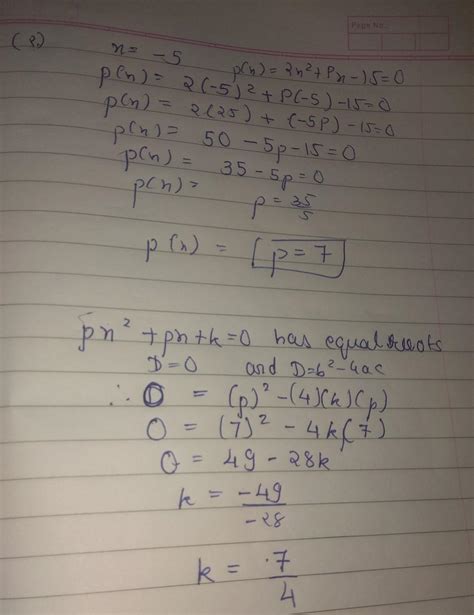 Page No.:
(8) x = -5 p(x) = 2x² + Px - 15 = 0
p(x) = 2(-5)² + P(-5) - 15 = 0
p(x) = 2(25) + (-5P) - 15 = 0
p(x) = 50 - 5p - 15 = 0
p(x) = 35 - 5p = 0
p(x) = p = 35/5
p(x) = p = 7
px² + px + k = 0 has equal roots
D = 0 and D = b² - 4ac
∴ 0 = (p)² - (4)(k)(p)
0 = (7)² - 4k(7)
0 = 49 - 28k
k = -49/-28
k = 7/4